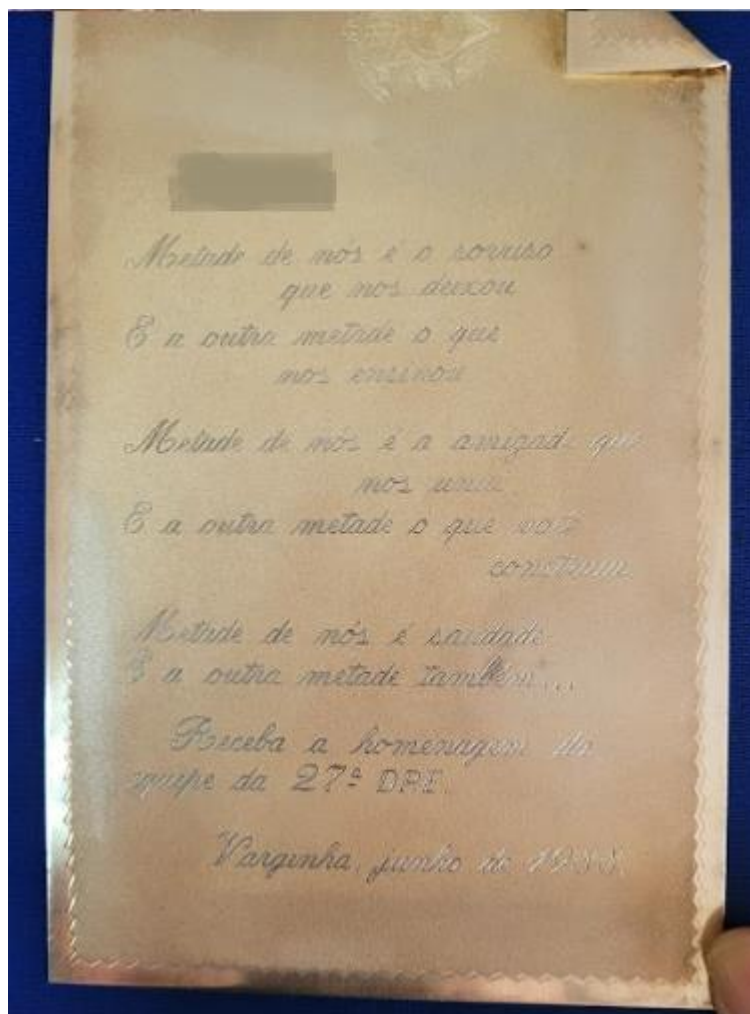 Metade de nós é o sorriso
que nos deixou
E a outra metade o que
nos ensinou
Metade de nós é a amizade que
nos unia
E a outra metade o que você
construiu
Metade de nós é saudade
E a outra metade também...
Receba a homenagem da
equipe da 27ª DRE.
Varginha, junho de